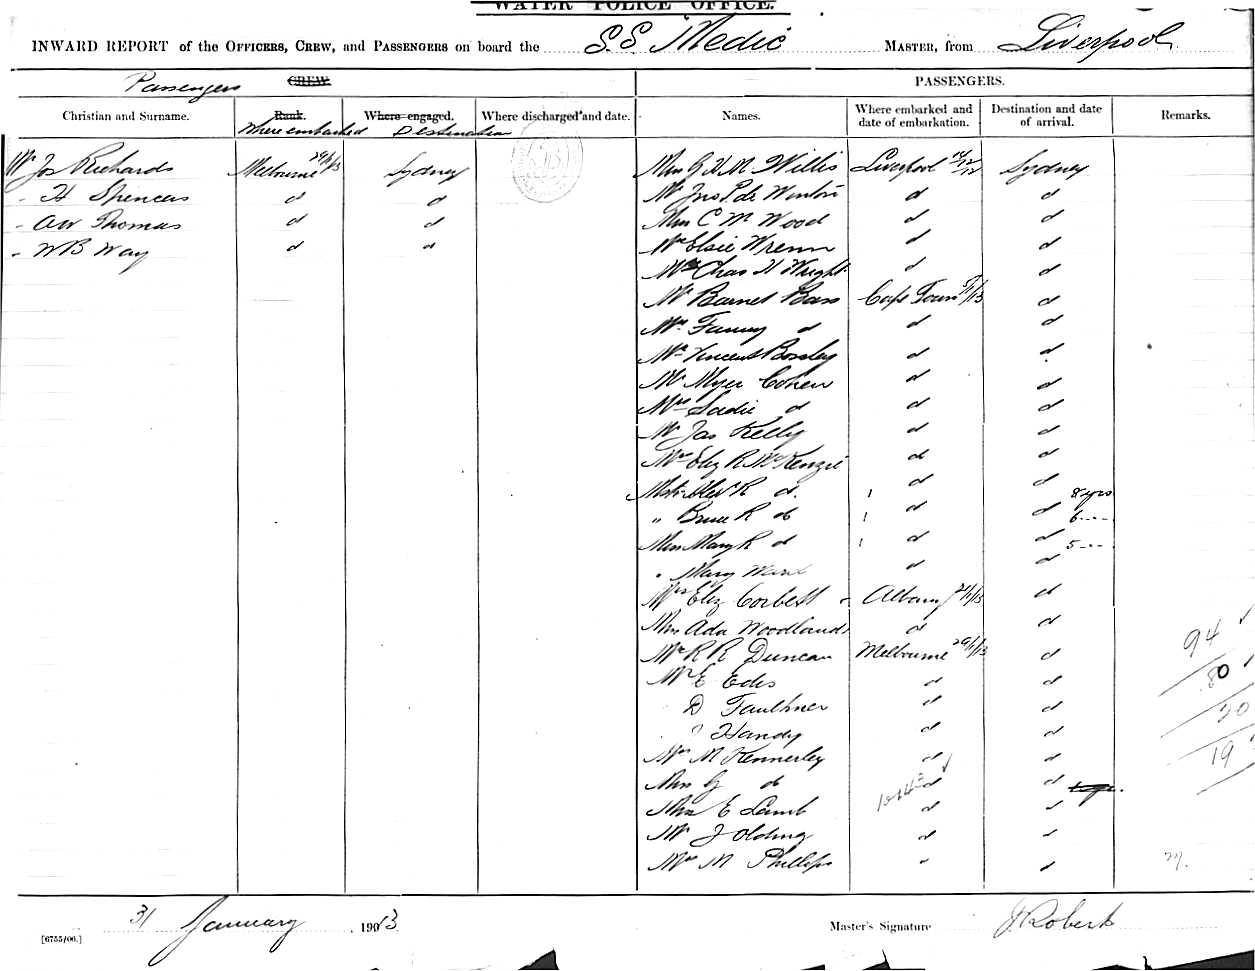 WATER POLICE OFFICE.
INWARD REPORT of the OFFICERS, CREW, and PASSENGERS on board the S.S. Medic MASTER, from Liverpool
Passengers CREW.
Christian and Surname. Rank. Where embarked Where engaged. Destination Where discharged and date.
Mr Jos Richards Melbourne 29/1/13 Sydney
" H Spencer d d
" AW Thomas d d
" WB Way d d
PASSENGERS.
Names. Where embarked and date of embarkation. Destination and date of arrival. Remarks.
Miss G H M Willis Liverpool 14/12/12 Sydney
Mr Jno P. de Winton d d
Miss C M Wood d d
Elsie Wrenn d d
Chas H Wright d d
Mr Barnet Bass Cape Town 5/1/13 d
Mrs Fanny d d d
Mr Vincent Bossley d d
Mr Myer Cohen d d
Mrs Sadie d d d
Mr Jas Kelly d d
Mrs Eliz R McKenzie d d
Mstr Alexr R d. 1 d d 8 yrs
" Bruce R do 1 d d 6 - - -
Miss Mary R d 1 d d 5 - - -
" Mary Ward d d
Mrs Eliz Corbett Albany 24/1/13 d
Miss Ada Woodlands d d
Mr R R Duncan Melbourne 29/1/13 d
Mr E Edis d d
D Faulkner d d
Handy d d
Mrs M Kennerley d d
Miss G do d d
Miss E Lamb d
Mr J Olding d
Mrs M Phillips d
94
80
20
19
31 January 1903 13
Master's Signature J Roberts
[6755/06.]